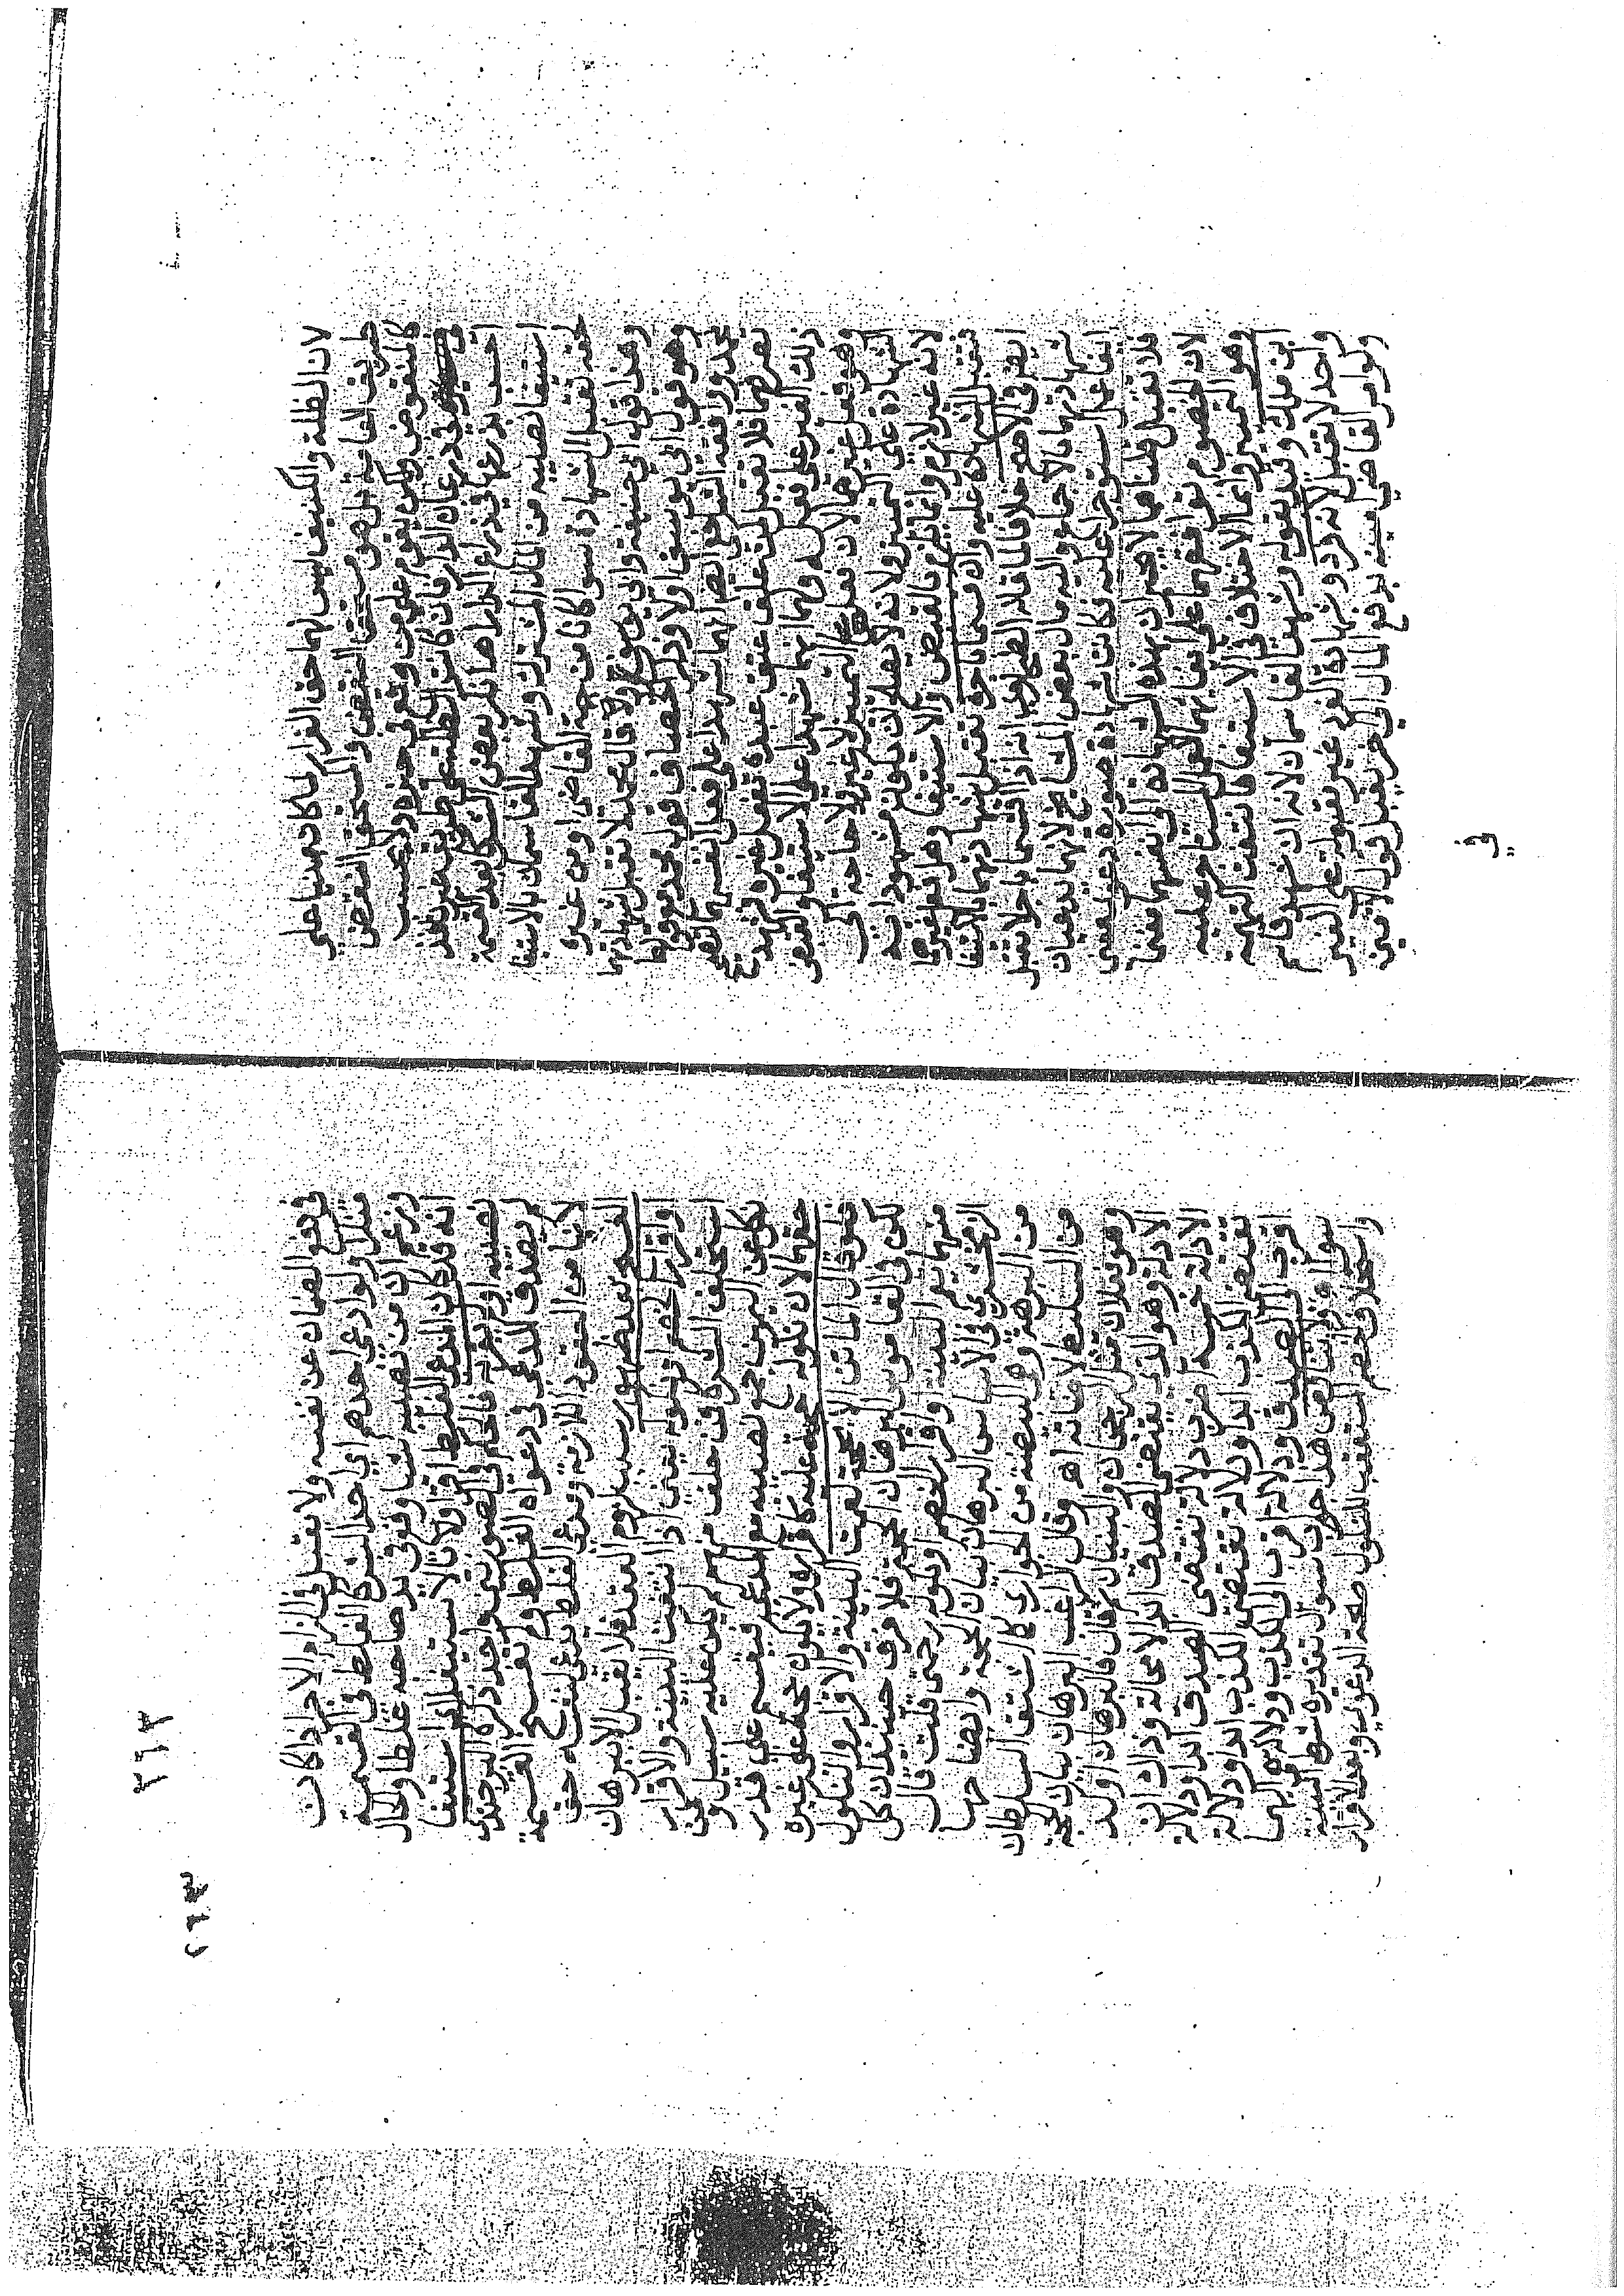 لان الظلة والكنيف ليس لهما حق القرار لما كانا مبنيا على
طريق العامة بل هو مستحق النقض والمستحق النقض
كالمنقوض ولكن يقوم على من وقع في حيزه ولا يحسب
في ذرعان الدار فان كانت الظلة على طريق غير نافذ
احتسب بذرعها في ذرع الدار اهـ انكر بعض الشركا بعد القسمة
استيفا نصيبه من المال المشترك وشهد القاسمان بالاستيفا
حقه تقبل الشهادة سوا كانا من جهة القاضي او من غيره
وهذا قول ابي حنيفة وابي يوسف وقال محمد لا تقبل شهادتهما
وهو قول ابي يوسف اولا وذكر الخصاف قول محمد مع قولهما
لمحمد ووافقه الشافعي انهما شهدا على فعل انفسهما
فعلهما فلا تقبل كمن علق عتق عبده بفعل غيره فشهد
ذلك الغير على فعله ولهما انهما شهدا على الاستيفا والقبض
وهو فعل غيرهما لان فعلهما التمييز لا غير ولا حاجة الى
الشهادة على التمييز ولانه لا يصلح ان يكون مشهودا به
لانه غير لازم وانما يلزم بالقبض والاستيفا وهو فعل غيرهما
فتقبل الشهادة عليه وان قسما باجر تقبل شهادتهما بالاستيفا
ايضا في الاصح خلافا لما قاله الطحاوي انه اذا اقتسما باجر لا تقبل
شهادتهما بالاجماع واليه مال بعض المشايخ لانهما يدعيان
ايفا عمل استوجرا عليه فكانت شهادة صورة دعوى معنى
فلا تقبل قلنا هما لا يجران بهذه الشهادة الى انفسهما مغنما
لان الخصوم توافقهما على ايفائهما العمل المستاجر عليه
وهو التمييز وانما الاختلاف في الاستيفا فانتفت التهمة
ابن ملك وقيد بقوله وشهد القاسمان لانه ان شهد قاسم
واحد لا تقبل لانه فرد وشهادة الفرد غير مقبولة على الغير
ولو امر القاضي امينه بدفع المال الى اخر يقبل قول الامين
في
٢٦٢
٢٦٣
في دفع الضمان عن نفسه ولا تقبل في الزام الاخر اذا كانت
منكرا ولو ادعى احدهم اي احد الشركا الغلط في القسمة
وزعم ان من نصيبه شيا وقع في يد صاحبه غلطا والحال
انه قد كان المدعي الغلط اقر اولا بالاستيفا اي استيفا
نصيبه او لم يقر به فالحكم في الصورتين واحد ذكره البرجندي
لم يصدق المدعي في دعواه الغلط ولم تفسخ القسمة
لانها من العقود اللازمة ومدعي الغلط يدعي لنفسه حق
الفسخ بعد ظهور سبب لزوم العقد فلا تقبل الا ببرهان
او اقرار الخصم او نكوله يعني اذا انتفت البينة والاقرار
استحلف الشركا فمن حلف منهم لم يكن عليه سبيل ومن
نكل عن اليمين جمع نصيبه مع المدعي فيقسم على قدر
حقهما لان نكوله حجة عليه كاقراره ولا يكون حجة على غيره
فلو قال الماتن الا بحجة لعمت البينة والاقرار والنكول
لكن في القاموس البرهان الحجة فلا فرق حينئذ
منهما يعم البينة واقرار الخصم ونكوله رحمتي قلت قال
الزمخشري في الاساس البرهان بيان الحجة وايضاحها
من البرهرهة وهي البيضة من الجواري كما اشتق السلطان
من السليط لاضاته اهـ وقال الراغب البرهان بيان الحجة
وهو فعلان مثل الرجحان والبنيان ثم قال فالبرهان اوكد
الادلة وهو الذي يقتضي الصدق ابدا لا محالة وذلك ان
الادلة خمسة اضرب دلالة تقتضي الصدق ابدا ودلالة
تقتضي الكذب ابدا ودلالة تقتضي الكذب ابدا ودلالة
اقرب الى الصدق ودلالة اقرب الى الكذب ودلالة اليهما
سوا